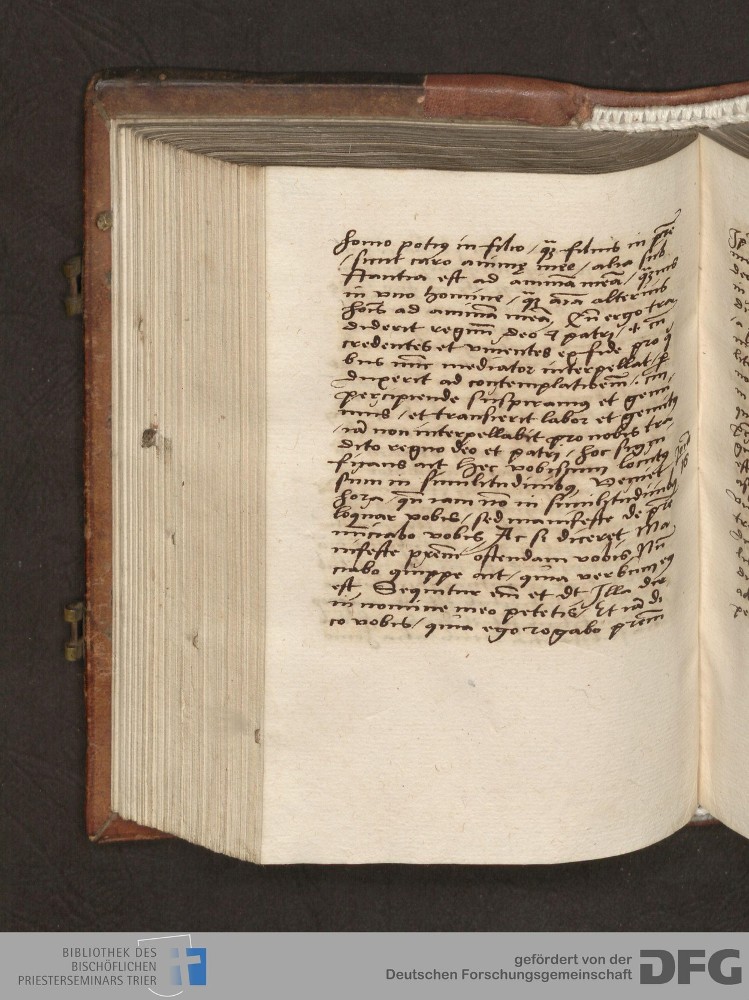 homo potius in filio / q̄ȝ filius in pr̄e
/ sicut caro animę meę / alia sub
stantia est ad animā meā / q̄ȝuis
in vno homine / q̄ȝ aīa alterius
hoīs ad animā meā, Cū ergo tra
diderit regnū deo et patri / .i. cū
credentes et viuentes ex fide pro q̄
bus nūc mediator interpellat / p̄
duxerit ad contemplationem / cui
percipiende suspiramus et gemi
mus / et transierit labor et gemitus
/ iā non interpellabit pro nobis tra
dito regno deo et patri / hoc signi
ficans ait Hęc vobis locutus
sum in similitudinibus, Veniet
hora / qn̄ iam nō in similitudinibus
loquar vobis / sed manifeste de pr̄e
nūciabo vobis, Ac si diceret Ma
nifeste prēm ostendam vobis Nū
ciabo quippe ait / quia verbum eius
est, Sequitur em̄ et dt Illa die
in nomine meo petetis, Et nō di
co vobis / quia ego rogabo prēm
BIBLIOTHEK DES
BISCHÖFLICHEN
PRIESTERSEMINARS TRIER
gefördert von der
Deutschen Forschungsgemeinschaft
DFG